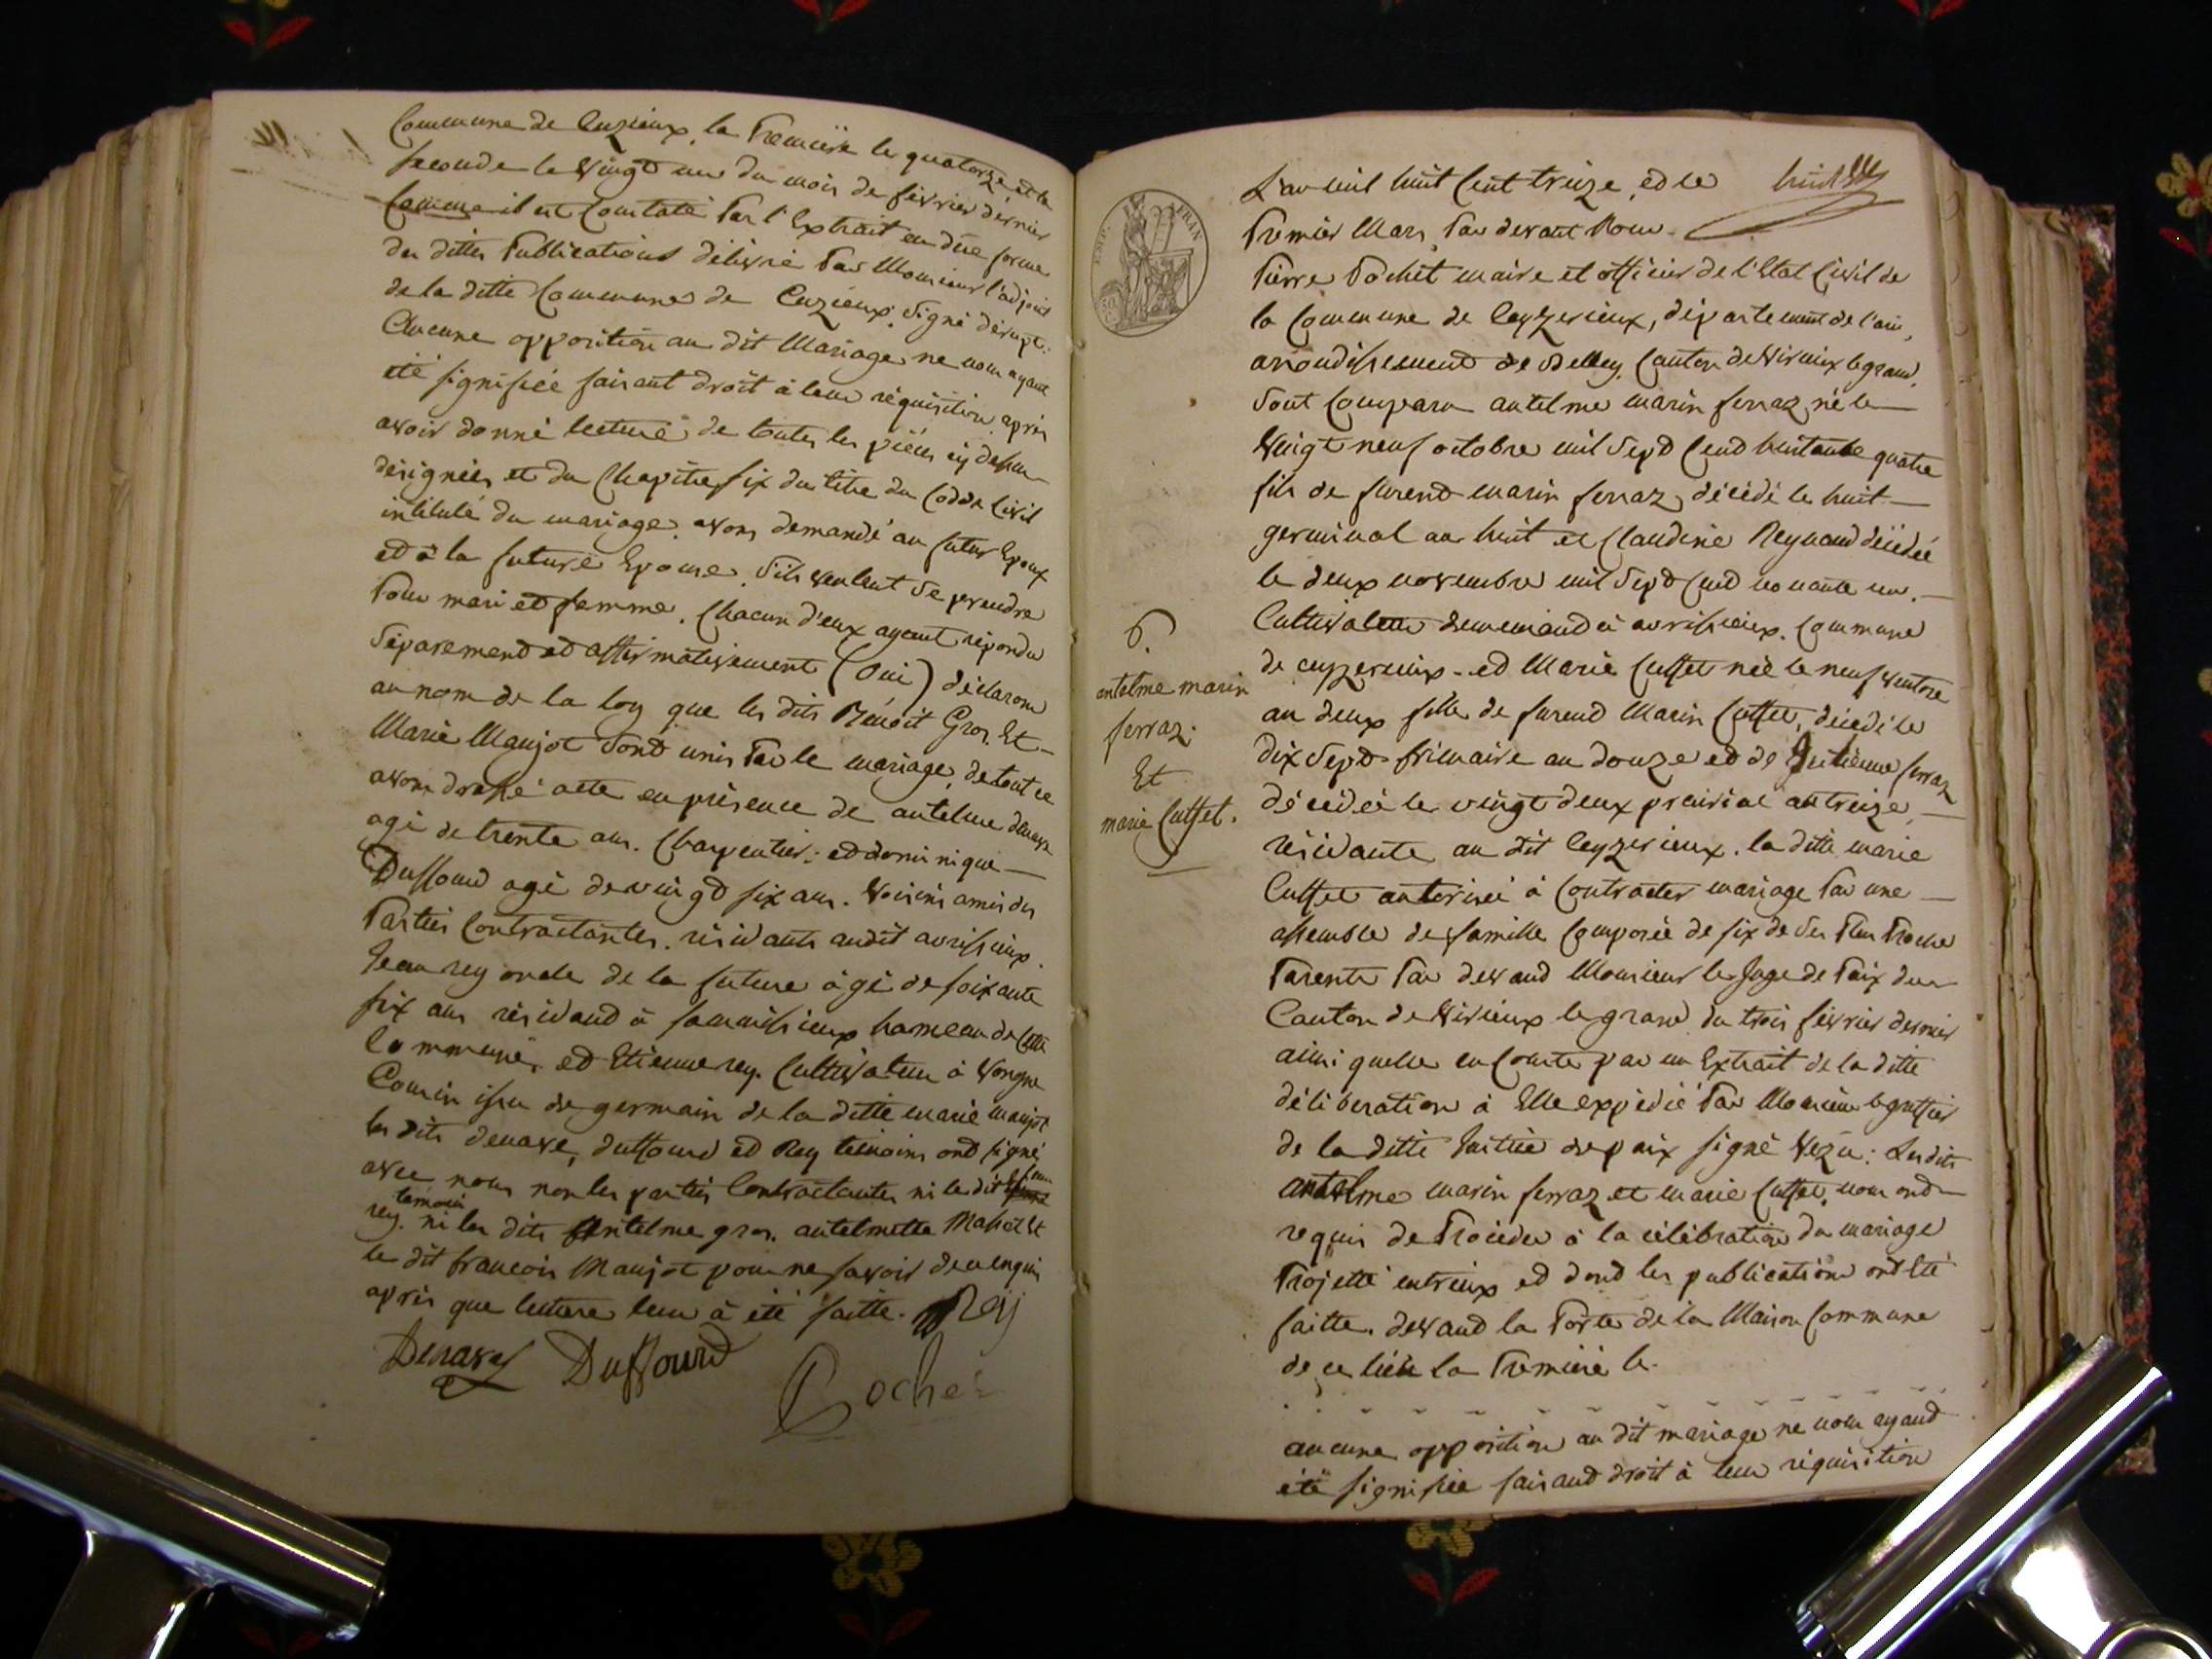 Commune de Cuzieux, la Premiere le quatorze et la
seconde le vingt un du mois de fevrier dernier
Comme il est Constaté Par l'Extrait en düe forme
des dittes Publications délivré Par Monsieur l'adjoint
de la ditte Commune de Cuzieux, Signé
Aucune opposition au dit Mariage ne nous ayant
été signifiée faisant droit à leur réquisition, après
avoir donné lecture de toutes les pièces cy dessus
désignées et du Chapitre six du titre du Codde Civil
intitulé du mariage. avons demandé au futur Epoux
ed à la future Epouse, s'ils veulent Se prendre
Pour mari ed femme. Chacun d'eux ayant répondu
Séparemend ed affirmativement (Oui) déclarons
au nom de la loy que les dits Bénoit Gros. Et
Marie Maujot Sond unis Par le mariage, de tout ce
avons dressé acte en présence de antelme denave
agé de trente ans. Charpentier; ed dominique
Duffourd agé de vingd six ans. Voisins amis des
Parties Contractantes. résidants audit avrissieux.
Jean rey oncle de la future âgé de soixante
six ans résidand à hameau de Cette
Commune, ed Etienne rey. Cultivateur à Vongne
Cousin issu de germain de la ditte marie maujot
les dits denave, duffourd ed Rey témoins ond signé
avec nous non les parties Contractantes ni le dit Jean
rey. témoin ni les dits Antelme gros. antelmette Et
le dit francois Maujot pour ne savoir de ce enquis
après que lecture leur à été faitte. Rey
Denave Duffourd
Pochet
huit
L'an mil huit Cent treize, ed le
Premier Mars, Par devant Nous
Pierre Pochet maire et officier de l'Etat Civil de
la Commune de Ceyzerieux, département de l'ain,
arrondissement de Belley, Canton de Virieux le grand,
Sont Comparu antelme marin ferraz, né le
Vingt neuf octobre mil Sepd Cend huitante quatre
fils de furend marin ferraz, décédé le huit
germinal an huit et Claudine Reynaud décédée
le deux novembre mil Sepd Cend nonante un.
Cultivateur demeurand à avrissieux. Commune
de ceyzerieux. ed Marie Cuffet née le neuf ventose
an deux fille de furend Marin Cuffet, décédé le
dix Sepd frimaire an douze ed de ferraz
décédée le vingt deux prairial an treize,
résidante au dit Ceyzerieux. la ditte marie
Cuffet autorisée à Contracter mariage Par une
assemble de famille Composée de six de Ses Plus Proche
Parents Par devand Monsieur le Juge de Paix du
Canton de Virieux le grand du trois février dernier
ainsi quelle en Conste par un Extrait de la ditte
déliberation à Elle expédié Par Monsieur le greffier
de la ditte Justice de paix signé Vezu: Lesdits
antelme marin ferraz et marie Cuffet, nous ond
requis de Proceder à la célébration du mariage
Projetté entreux ed dond les publications ont Eté
faitte. devand la Porte de la Maison Commune
de ce lieu la Premiere le.
aucune opposition au dit mariage ne nous ayand
été signifiée faisand droit à leur réquisition
6.
antelme marin
ferraz.
Et
marie Cuffet.